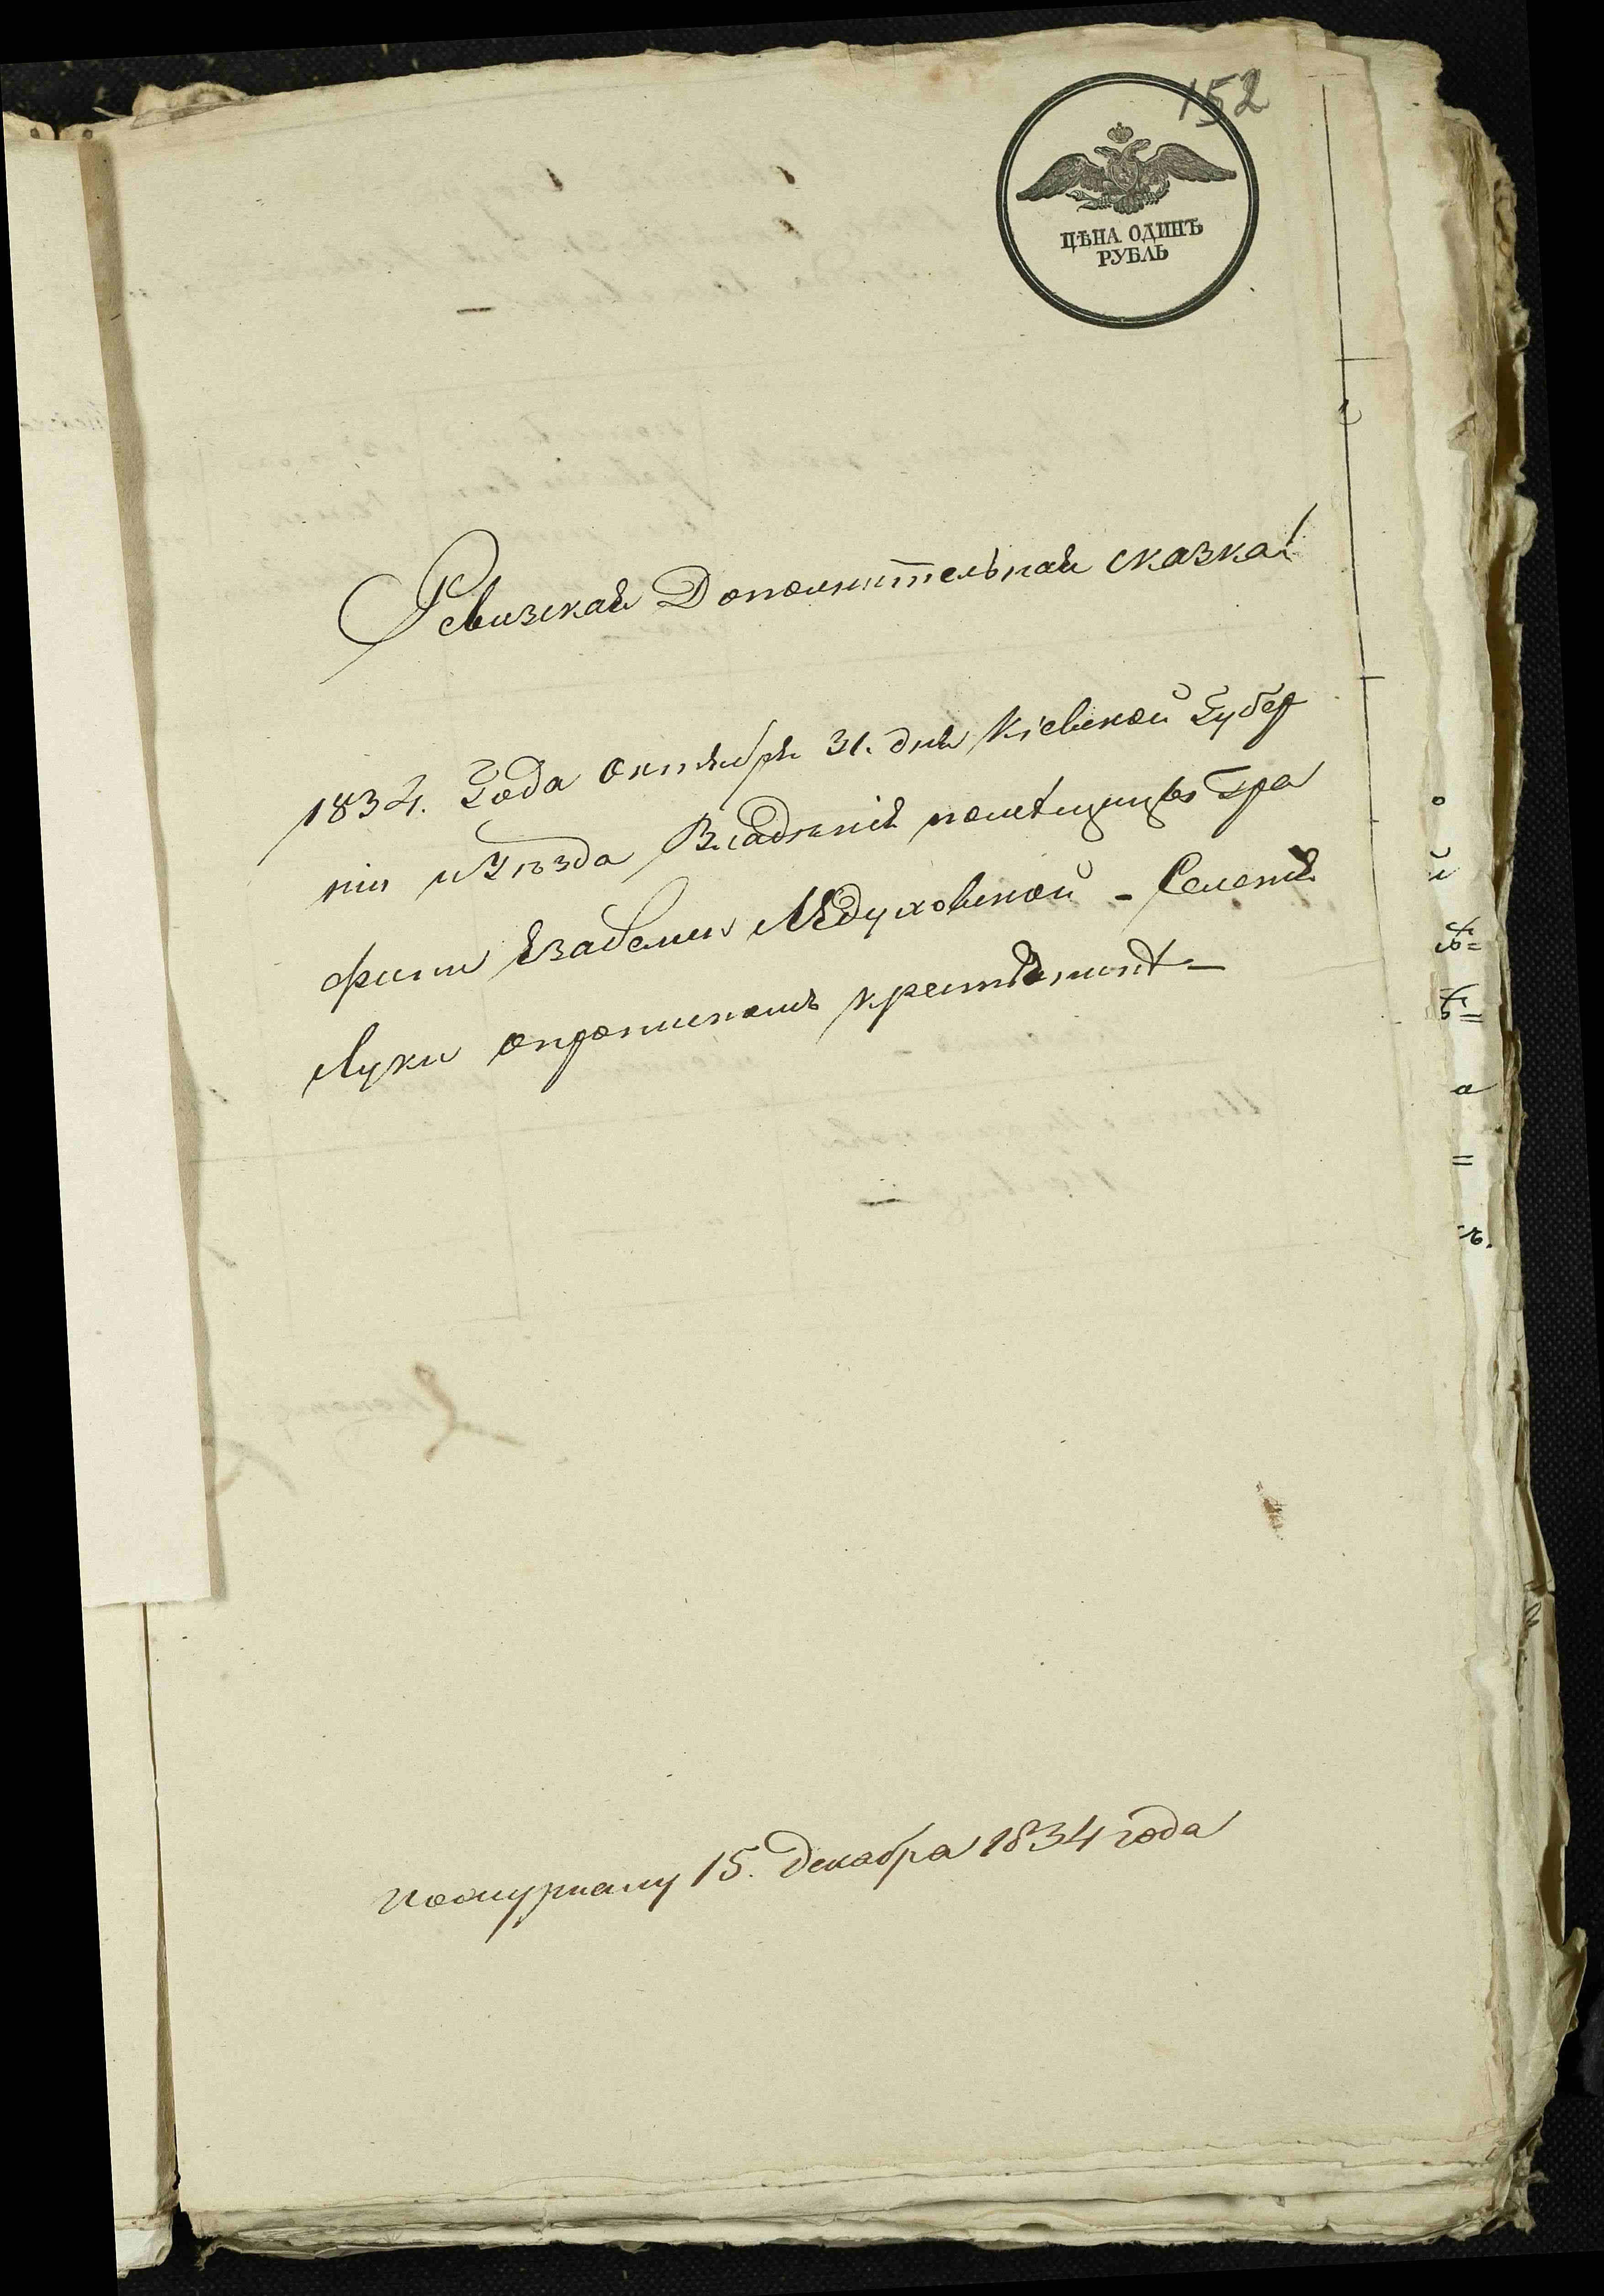 152
ЦѢНА ОДИНЪ
РУБЛЬ
Ревизская Дополнительная сказка
1834. Года октября 31. дня Кіевской Губер
ніи и Уѣзда Владѣнія помѣщицы Гра
фини Изабелли Лѣдуховской - Селенія
Луки опропискомъ крестьянинѣ -
По журналу 15. Декабра 1834 года